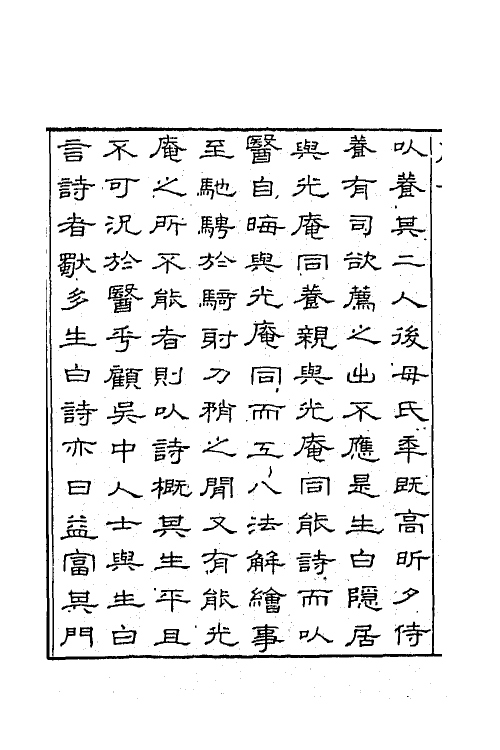 以養其二人後母氏年既高昕夕侍
養有司欲薦之出不應是生白隱居
與光庵同養親與光庵同能詩而以
醫自晦與光庵同而工八法解繪事
至馳騁於騎射刀矟之間又有能光
庵之所不能者則以詩概其生平且
不可況於醫乎顧吳中人士與生白
言詩者歇多生白詩亦日益富其門